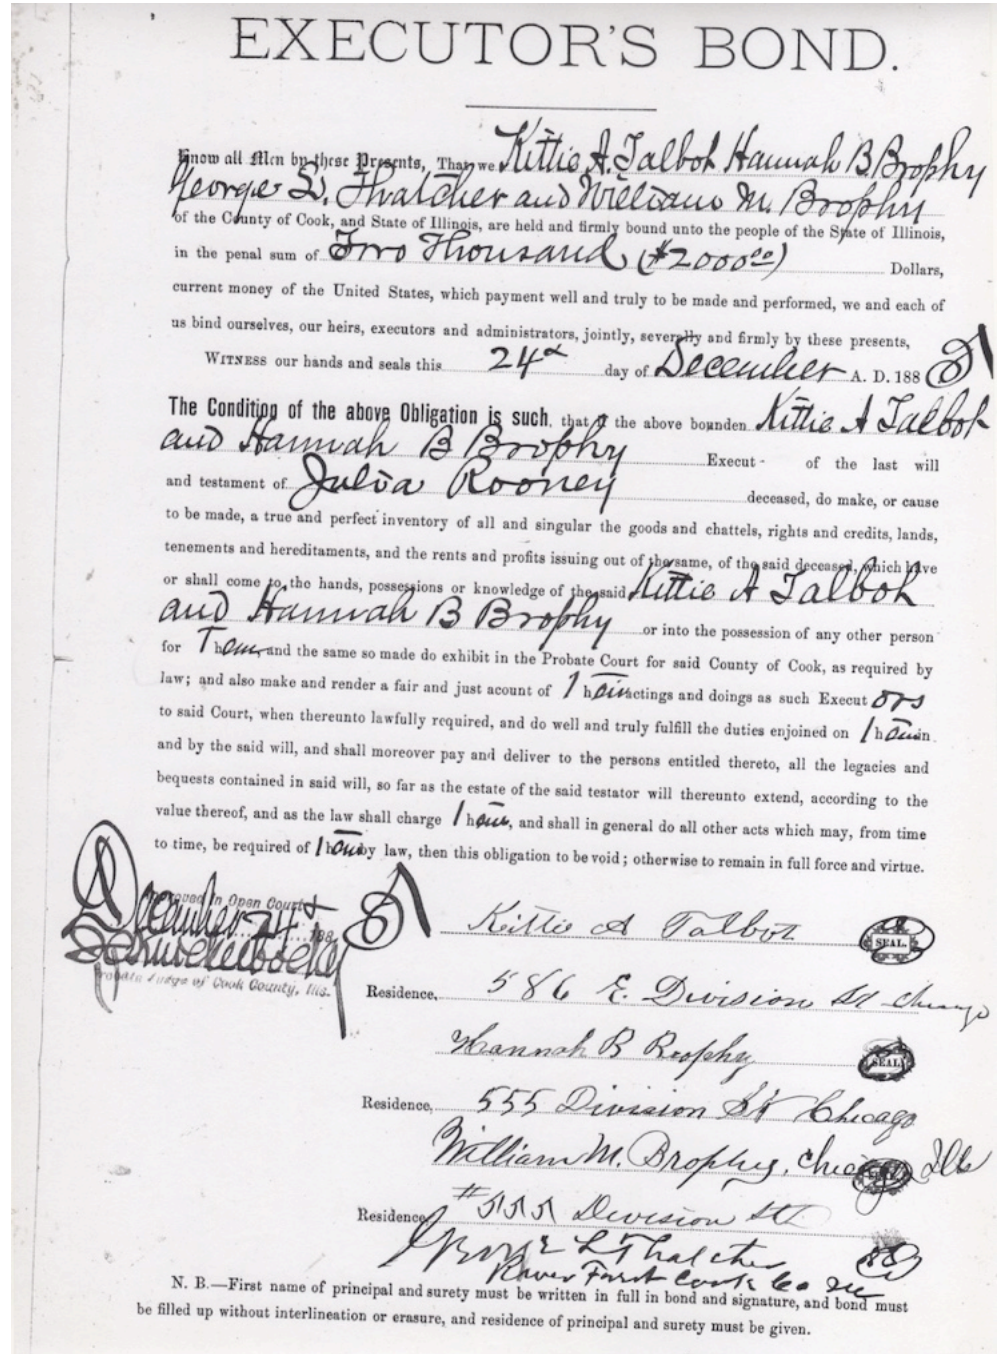 EXECUTOR'S BOND.
Know all Men by these Presents, That we Kittie A. Talbot Hannah B. Brophy
George L. Thatcher and William M. Brophy
of the County of Cook, and State of Illinois, are held and firmly bound unto the people of the State of Illinois,
in the penal sum of Two Thousand ($2000.00) Dollars,
current money of the United States, which payment well and truly to be made and performed, we and each of
us bind ourselves, our heirs, executors and administrators, jointly, severally and firmly by these presents,
WITNESS our hands and seals this 24th day of December A. D. 188
The Condition of the above Obligation is such, that if the above bounden Kittie A Talbot
and Hannah B Brophy Execut- of the last will
and testament of Julia Rooney deceased, do make, or cause
to be made, a true and perfect inventory of all and singular the goods and chattels, rights and credits, lands,
tenements and hereditaments, and the rents and profits issuing out of the same, of the said deceased, which have
or shall come to the hands, possessions or knowledge of the said Kittie A Talbot
and Hannah B Brophy or into the possession of any other person
for Them, and the same so made do exhibit in the Probate Court for said County of Cook, as required by
law; and also make and render a fair and just acount of Their actings and doings as such Execut ors
to said Court, when thereunto lawfully required, and do well and truly fulfill the duties enjoined on Them in
and by the said will, and shall moreover pay and deliver to the persons entitled thereto, all the legacies and
bequests contained in said will, so far as the estate of the said testator will thereunto extend, according to the
value thereof, and as the law shall charge Them, and shall in general do all other acts which may, from time
to time, be required of Them by law, then this obligation to be void; otherwise to remain in full force and virtue.
Approved in Open Court
December 24 188
Knickerbocker
Probate Judge of Cook County, Ills.
Kittie A Talbot SEAL.
Residence, 586 E. Division St Chicago
Hannah B Brophy SEAL
Residence, 555 Division St Chicago
William M. Brophy, Chicago Ills
Residence #555 Division St
George L Thatcher
River Forest Cook Co Ill
N. B.—First name of principal and surety must be written in full in bond and signature, and bond must
be filled up without interlineation or erasure, and residence of principal and surety must be given.